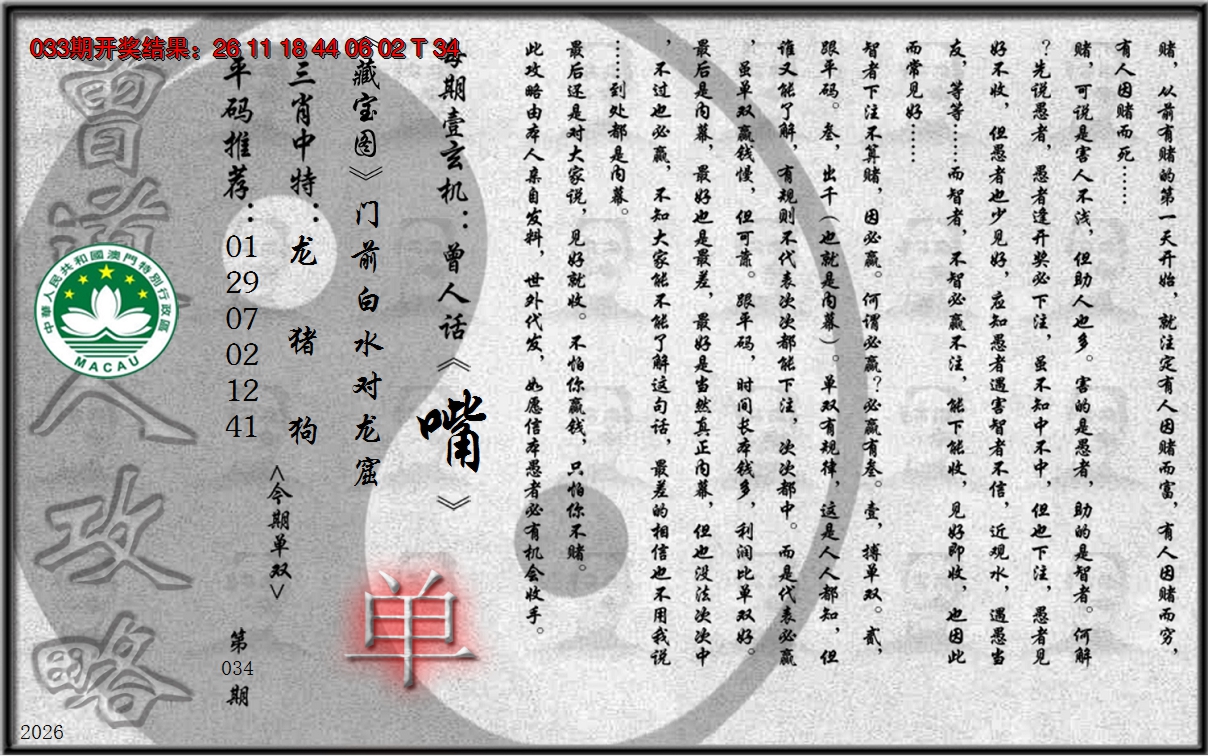 033期开奖结果：26 11 18 44 06 02 T 34
赌，从前有赌的第一天开始，就注定有人因赌而富，有人因赌而穷，
有人因赌而死……
赌，可说是害人不浅，但助人也多。害的是愚者，助的是智者。何解
？先说愚者，愚者逢开奖必下注，虽不知中不中，但也下注，愚者见
好不收，但愚者也少见好，应知愚者遇害智者不信，近观水，遇愚当
友，等等……而智者，不智必赢不注，能下能收，见好即收，也因此
而常见好……
智者下注不算赌，因必赢。何谓必赢？必赢有叁。壹，搏单双。贰，
跟平码。叁，出千（也就是内幕）。单双有规律，这是人人都知，但
谁又能了解，有规则不代表次次都能下注，次次都中。而是代表必赢
，虽单双赢钱慢，但可靠。跟平码，时间长本钱多，利润比单双好。
最后是内幕，最好也是最差，最好是当然真正内幕，但也没法次次中
，不过也必赢，不知大家能不能了解这句话，最差的相信也不用我说
……到处都是内幕。
最后还是对大家说，见好就收。不怕你赢钱，只怕你不赌。
此攻略由本人亲自发料，世外代发，如愿信本愚者必有机会收手。
每期壹玄机：曾人话《嘴》
《藏宝图》门前白水对龙窟
三肖中特：龙 猪 狗
平码推荐：01 29 07 02 12 41
<今期单双>
单
第034期
曾道人攻略
中華人民共和國澳門特別行政區
MACAU
2026